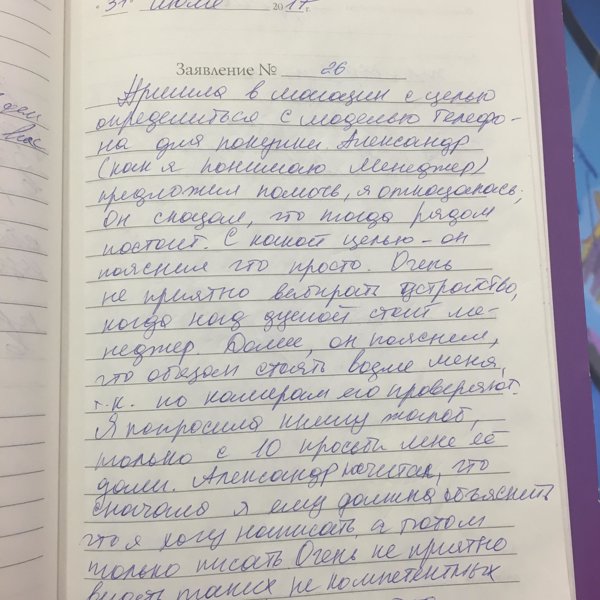 "31" июля 2017 г.
Заявление № 26
Пришла в магазин с целью
определиться с моделью телефо-
на для покупки. Александр
(как я понимаю менеджер)
предложил помочь, я отказалась,
Он сказал, что тогда рядом
постоит. С какой целью - он
пояснил что просто. Очень
не приятно выбирать устройство,
когда над душой стоит ме-
неджер. Более, он пояснил,
что обязан стоять возле меня,
т.к. по камерам его проверяют.
Я попросила книгу жалоб,
только с 10 просьбы мне её
дали. Александр считал, что
сначала я ему должна объяснить
что я хочу написать, а потом
только писать Очень не приятно
видеть таких не компетентных